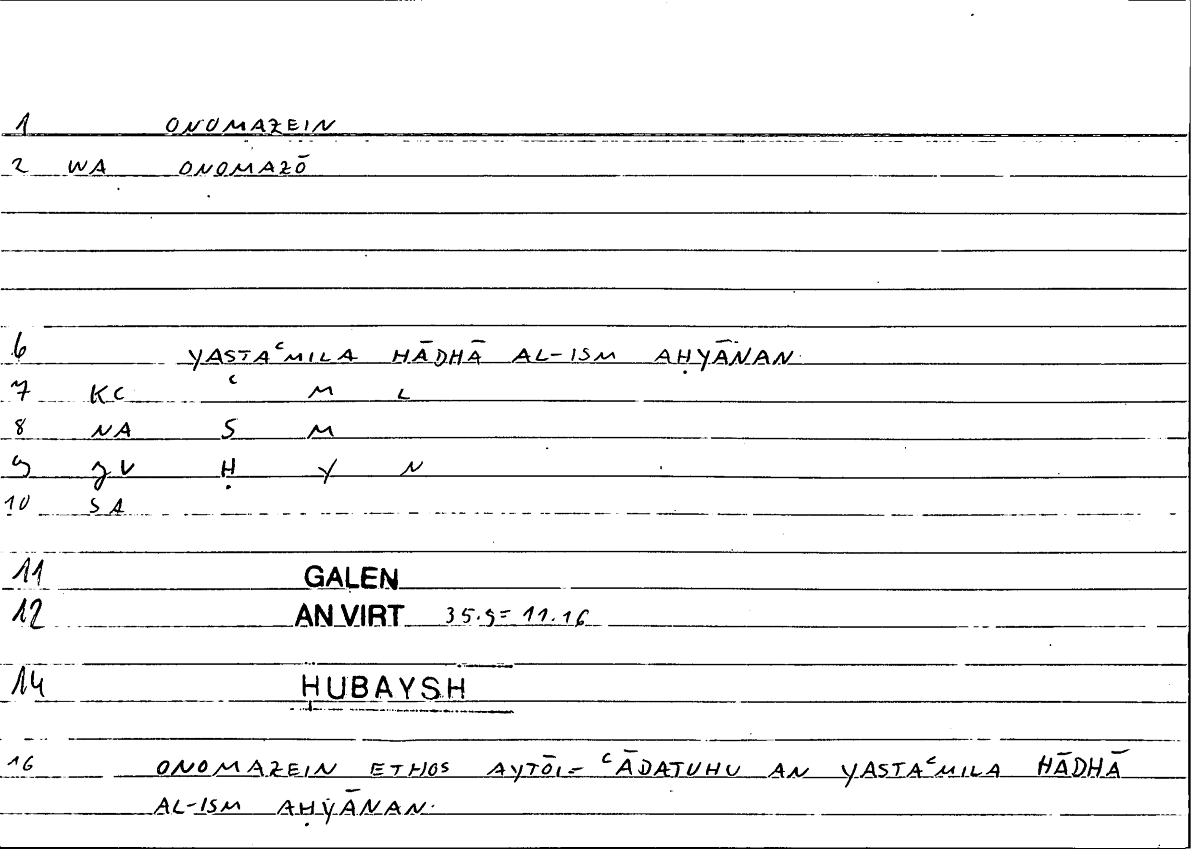 1 ONOMAZEIN
2 WA ONOMAZŌ
6 YASTAᶜMILA HĀDHĀ AL-ISM AḤYĀNAN
7 KC ᶜ M L
8 NA S M
9 JV Ḥ Y N
10 SA
11 GALEN
12 AN VIRT 35.9= 11.16
14 ḤUBAYSH
16 ONOMAZEIN ETHOS AYTŌI= ᶜĀDATUHU AN YASTAᶜMILA HĀDHĀ
AL-ISM AḤYĀNAN.